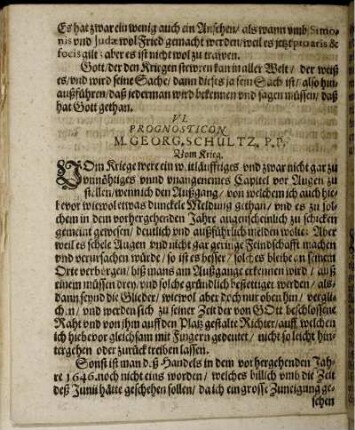 Es hat zwar ein wenig auch ein Ansehen/ als wann umb Simo-
nis und Judæ wol Fried gemacht werden/ weil es jetzt pro aris &
focis gilt: aber es ist nicht wol zu trawen.
Gott/ der den Kriegen stewren kan in aller Welt/ der weiß
es/ und wird seine Sache/ dann dieses ja sein Sach ist/ also hin-
außführen/ daß jederman wird bekennen und sagen müssen/ daß
hat Gott gethan.
VI.
PROGNOSTICON
M. GEORG. SCHULTZ, P. P.
Vom Krieg.
VOm Kriege were ein weitläufftiges und zwar nicht gar zu
unnöhtiges unnd unangenemes Capitel vor Augen zu
stellen/ wenn ich den Außgang/ von welchem ich auch hie-
bevor wiewol etwas dunckele Meldung gethan/ und es zu sol-
chem in dem vorhergehenden Jahre augenscheinlich zu schicken
gemeint gewesen/ deutlich und außführlich melden wolte: Aber
weil es schele Augen und nicht gar geringe Feindschafft machen
und verursachen würde/ so ist es besser/ solches bleibe an seinem
Orte verborgen/ biß mans am Außgange erkennen wird/ auß
einem müssen drey/ und solche gründlich befestiget werden/ als-
dann seynd die Glieder/ wiewol aber doch nur oben hin/ vergli-
chen/ und werden sich zu seiner Zeit der von GOtt beschlossene
Raht und von jhm auff den Platz gestalte Richter/ auff welchen
ich hiebevor gleichsam mit Fingern gedeutet/ nicht so leicht hin-
tergehen oder zurück treiben lassen.
Sonst ist man deß Handels in dem vorhergehenden Jah-
re 1646. noch nicht eins worden/ welches billich umb die Zeit
deß Junii hätte geschehen sollen/ da ich ein grosse Zuneigung ge-
sehen